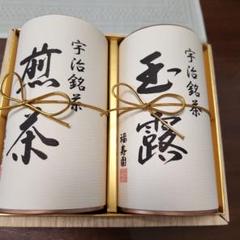 宇治銘茶
玉露
福寿園
宇治銘茶
煎茶